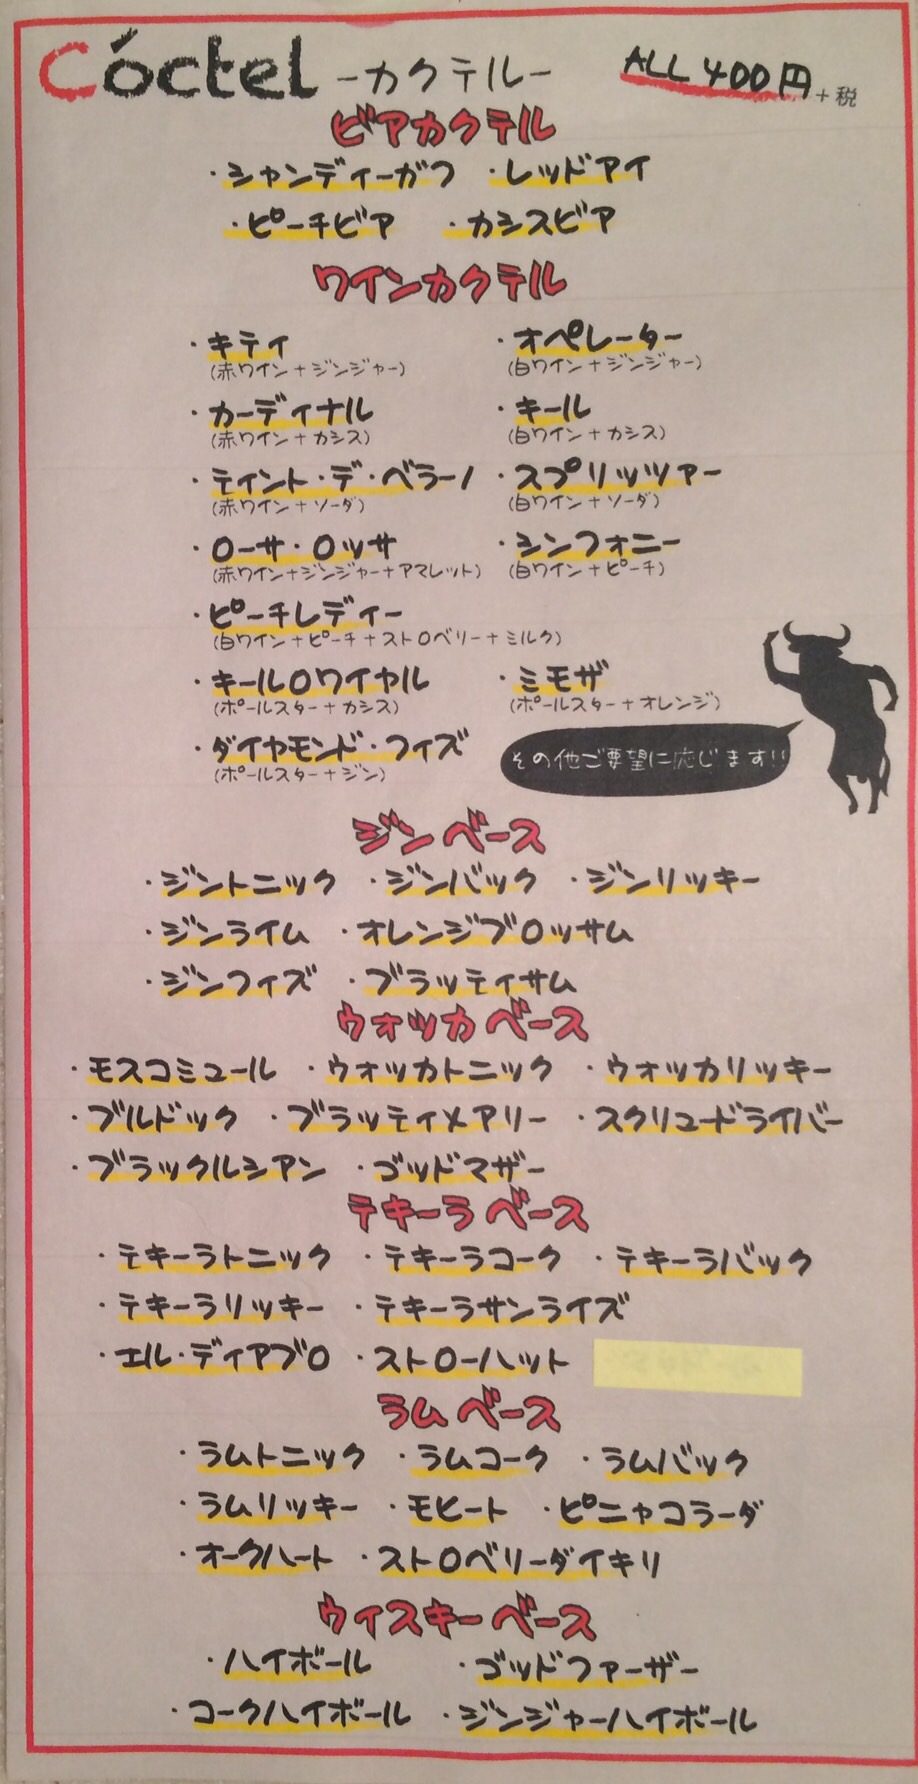 Cóctel -カクテル- ALL 400円+税
ビアカクテル
・シャンディーガフ ・レッドアイ
・ピーチビア ・カシスビア
ワインカクテル
・キティ ・オペレーター
(赤ワイン+ジンジャー) (白ワイン+ジンジャー)
・カーディナル ・キール
(赤ワイン+カシス) (白ワイン+カシス)
・ティント・デ・ベラーノ ・スプリッツァー
(赤ワイン+ソーダ) (白ワイン+ソーダ)
・ローサ・ロッサ ・シンフォニー
(赤ワイン+ジンジャー+アマレット) (白ワイン+ピーチ)
・ピーチレディー
(白ワイン+ピーチ+ストロベリー+ミルク)
・キールロワイヤル ・ミモザ
(ポールスター+カシス) (ポールスター+オレンジ)
・ダイヤモンド・フィズ
(ポールスター+ジン)
その他ご要望に応じます!!
ジンベース
・ジントニック ・ジンバック ・ジンリッキー
・ジンライム ・オレンジブロッサム
・ジンフィズ ・ブラッティサム
ウォッカベース
・モスコミュール ・ウォッカトニック ・ウォッカリッキー
・ブルドック ・ブラッティメアリー ・スクリュードライバー
・ブラックルシアン ・ゴッドマザー
テキーラベース
・テキーラトニック ・テキーラコーク ・テキーラバック
・テキーラリッキー ・テキーラサンライズ
・エル・ディアブロ ・ストローハット
ラムベース
・ラムトニック ・ラムコーク ・ラムバック
・ラムリッキー ・モヒート ・ピニャコラーダ
・オークハート ・ストロベリーダイキリ
ウィスキーベース
・ハイボール ・ゴッドファーザー
・コークハイボール ・ジンジャーハイボール